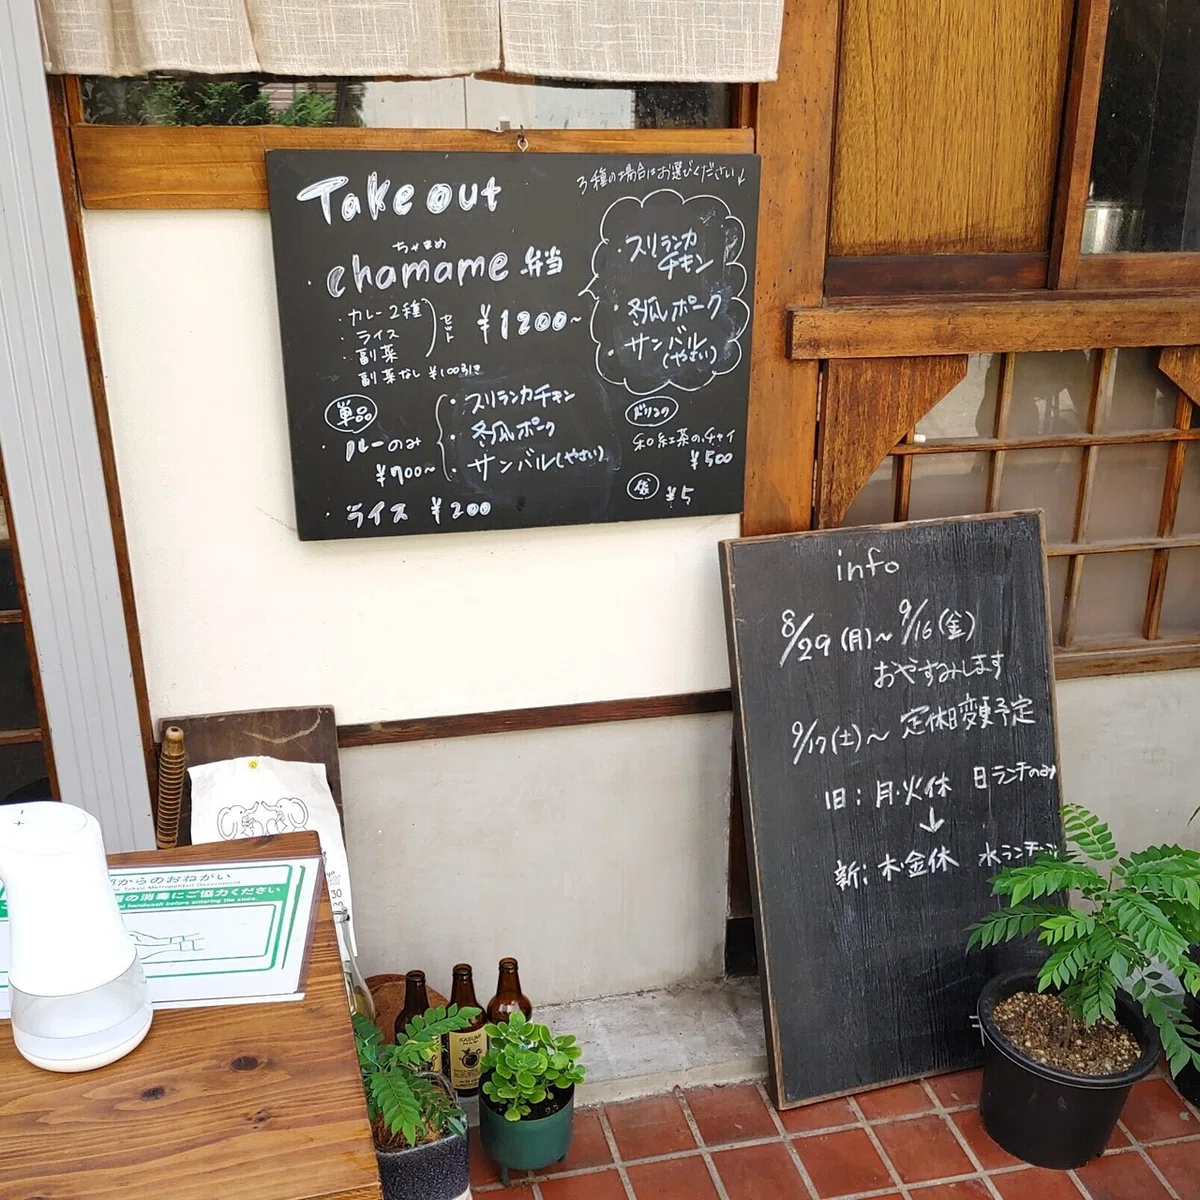 Take out
3種の場合はお選びください↓
ちゃまめ
・chamame 弁当
・カレー2種
・ライス
・副菜
セット
¥1200~
副菜なし ¥100引き
・スリランカ
チキン
・冬瓜ポーク
・サンバル
(やさい)
単品
・ルーのみ
¥700~
・スリランカチキン
・冬瓜ポーク
・サンバル(やさい)
・ライス ¥200
ドリンク
和紅茶のチャイ
¥500
袋 ¥5
info
8/29(月)~9/16(金)
おやすみします
9/17(土)~ 定休日変更予定
旧:月・火休 日ランチのみ
↓
新:木・金休 水ランチ
からのおねがい
The Tokyo Metropolitan Government
の消毒にご協力ください
handwash before entering the store.